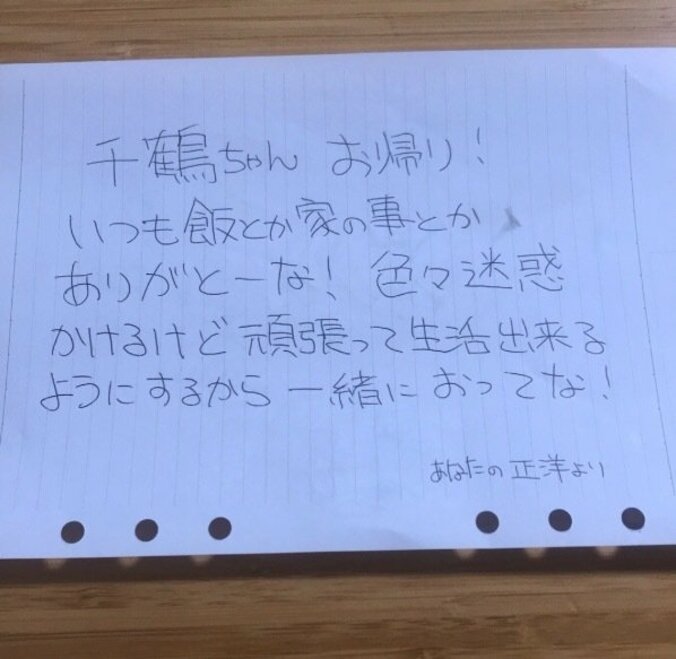 千鶴ちゃん お帰り!
いつも飯とか家の事とか
ありがとーな! 色々迷惑
かけるけど頑張って生活出来る
ようにするから一緒におってな!
あなたの正洋より